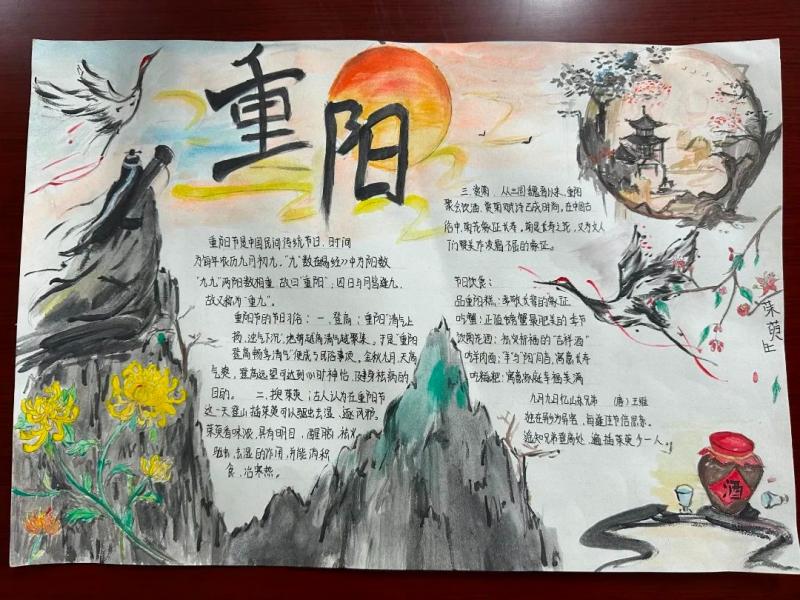 重阳
重阳节是中国民间传统节日,时间
为每年农历九月初九,"九"数在《易经》中为阳数
"九九"两阳数相重,故曰"重阳",因日与月皆逢九,
故又称为"重九"。
重阳节的节日习俗:一、登高:重阳"清气上
扬,浊气下沉"地势越高清气越聚集。于是"重阳
登高畅享清气"便成了民俗事项。金秋九月,天高
气爽,登高远望可达到心旷神怡、健身祛病的
目的。二、插茱萸:古人认为在重阳节
这一天登山插茱萸可以驱虫去湿、逐风邪。
茱萸香味浓,具有明目,醒脑,祛火,
驱虫、去湿的作用,并能消积
食,治寒热。
三、赏菊、从三国魏晋以来,重阳
聚会饮酒、赏菊赋诗已成时尚。在中国古
俗中,菊花象征长寿,菊是长寿之花,又为文人
们赞美作凌霜不屈的象征。
节日饮食:
品重阳糕:步步长高的象征
吃螃蟹:正值螃蟹最肥美的季节
饮菊花酒:祝又祈福的"吉祥酒"
吃羊肉面:羊与"阳"同音,寓意长寿
吃糍粑:寓意家庭幸福美满
九月九日忆山东兄弟 (唐)王维
独在异乡为异客,每逢佳节倍思亲。
遥知兄弟登高处,遍插茱萸少一人。
茱萸
酒